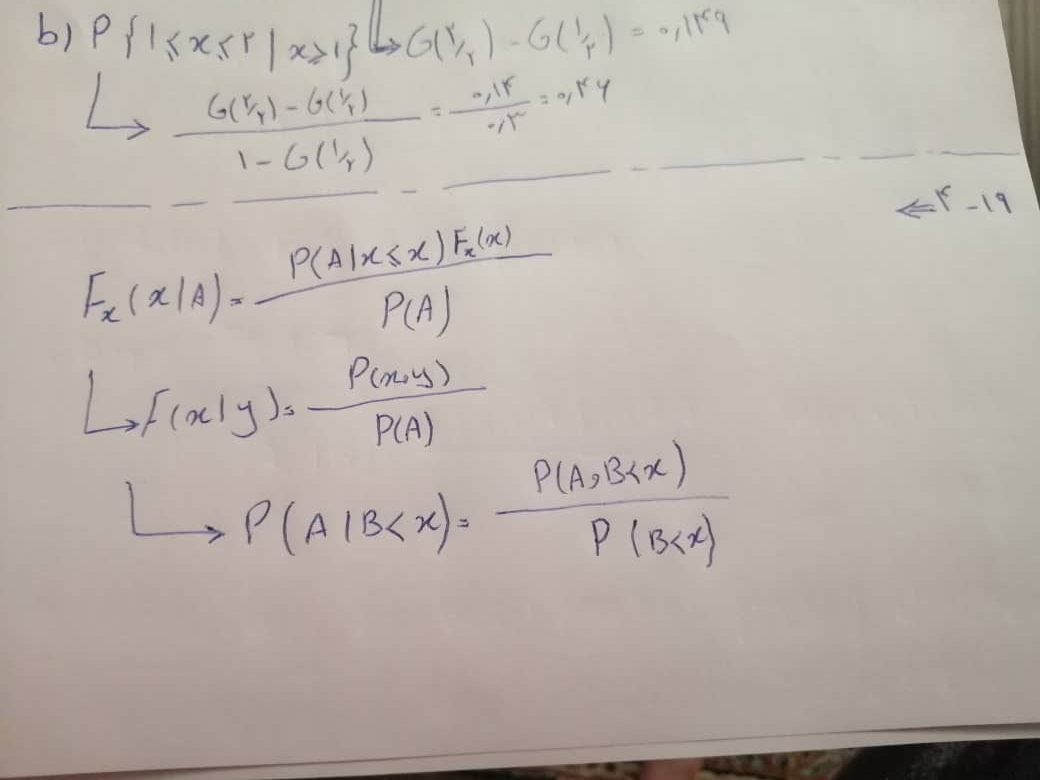 b) P{1≤x≤۲ | x≥1} ↳ G(۲/۲) - G(۱/۲) = ۰,۱۴۹
↳ G(۲/۲) - G(۱/۲) / ۱ - G(۱/۲) = ۰,۱۴ / ۰,۳ = ۰,۴۶
⇐ ۴ - ۱۹
Fx(x|A) = P(A|x≤x) Fx(x) / P(A)
↳ F(x|y) = P(x,y) / P(A)
↳ P(A|B<x) = P(A,B<x) / P(B<x)